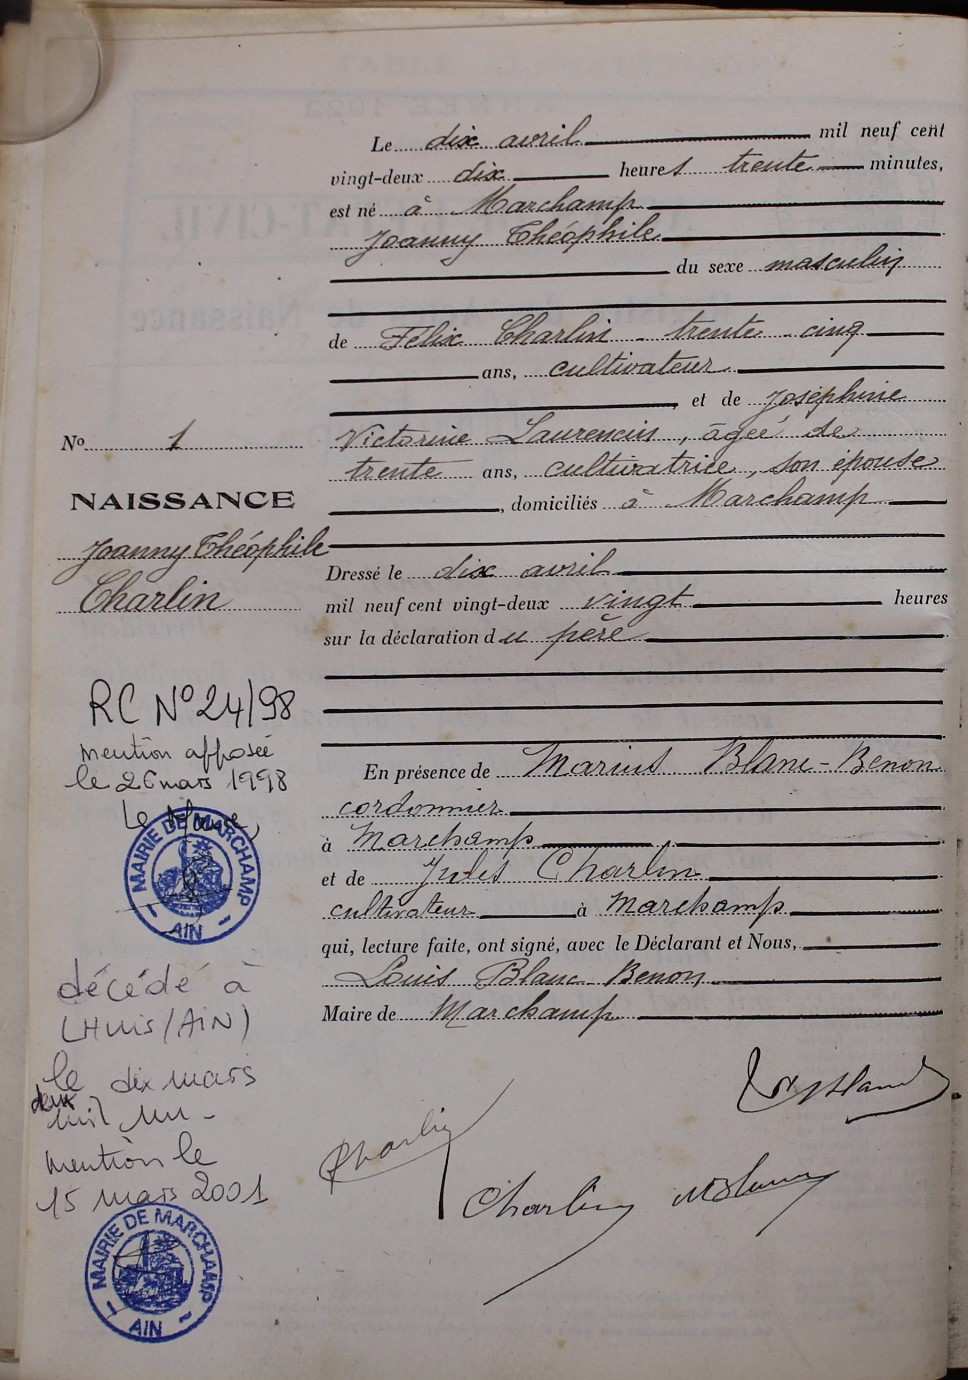 Le dix avril mil neuf cent
vingt-deux dix heures trente minutes,
est né à Marchamp
Joanny Théophile
du sexe masculin
de Félix Charlin trente-cinq
ans, cultivateur
et de Joséphine
Victorine Laurencin, âgée de
trente ans, cultivatrice, son épouse
, domiciliés à Marchamp
Dressé le dix avril
mil neuf cent vingt-deux vingt heures
sur la déclaration du père
En présence de Marius Blanc-Benon
cordonnier
à Marchamp
et de Jules Charlin
cultivateur à Marchamp
qui, lecture faite, ont signé, avec le Déclarant et Nous,
Louis Blanc Benon
Maire de Marchamp
Charlin
Charlin
No 1
NAISSANCE
Joanny Théophile
Charlin
RC No 24/98
mention apposée
le 26 mars 1998
Le Maire,
MAIRIE DE MARCHAMP
AIN
décédé à
LHUIS (AIN)
le dix mars
deux mil un -
mention le
15 mars 2001
MAIRIE DE MARCHAMP
AIN